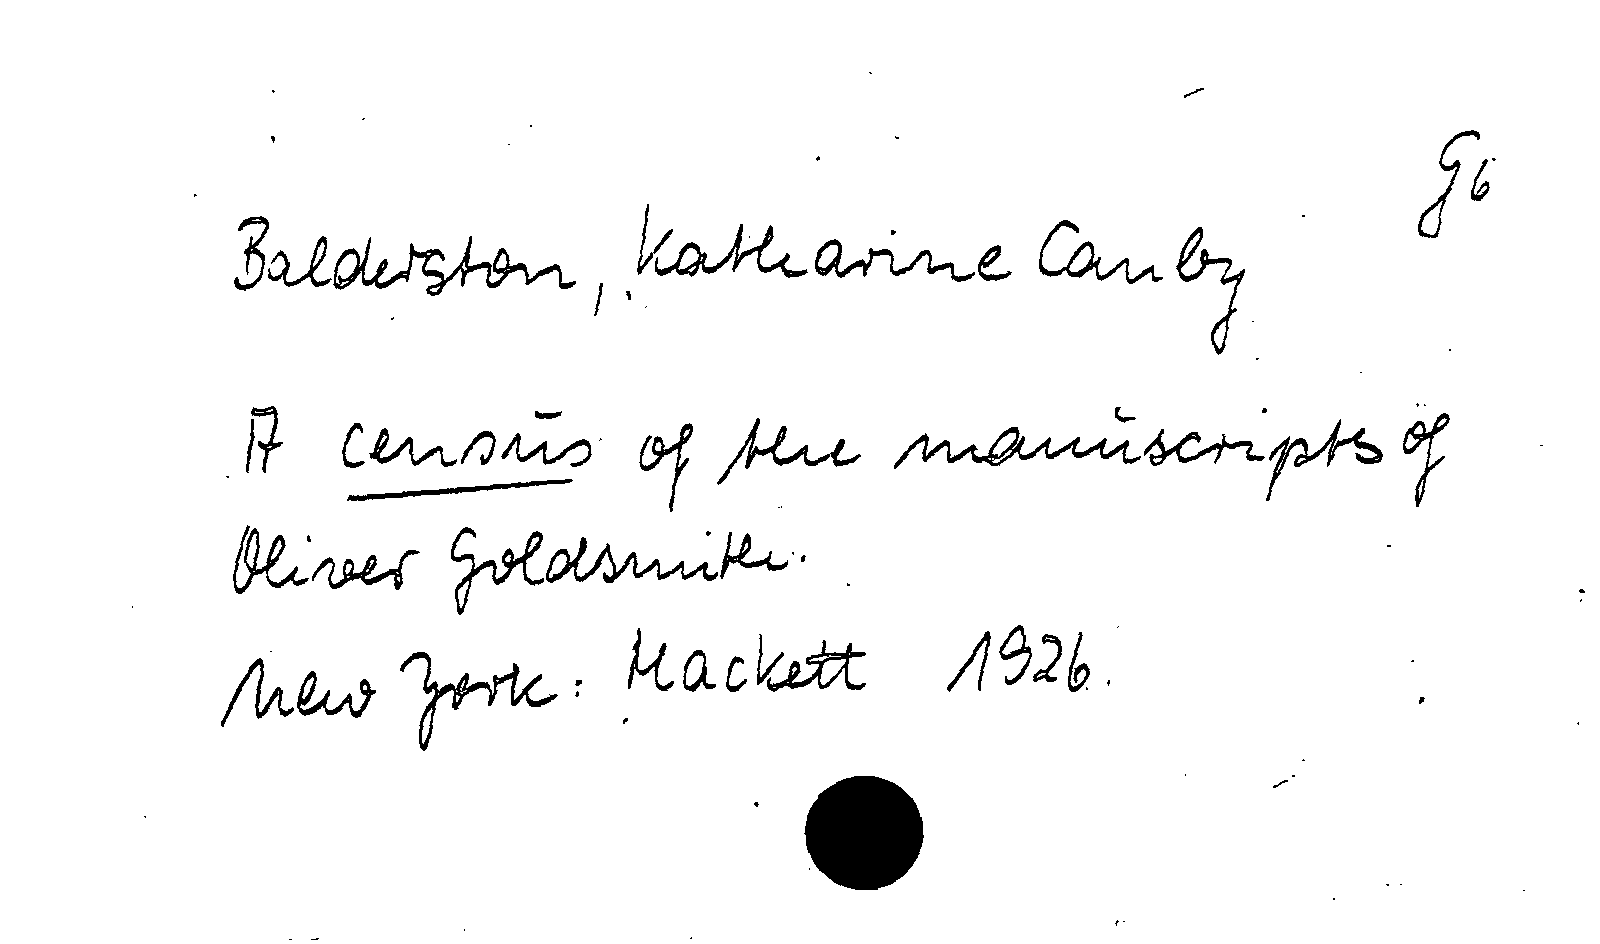 G6
Balderston, Katharine Canby
A census of the manuscripts of
Oliver Goldsmith.
New York: Hackett 1926.